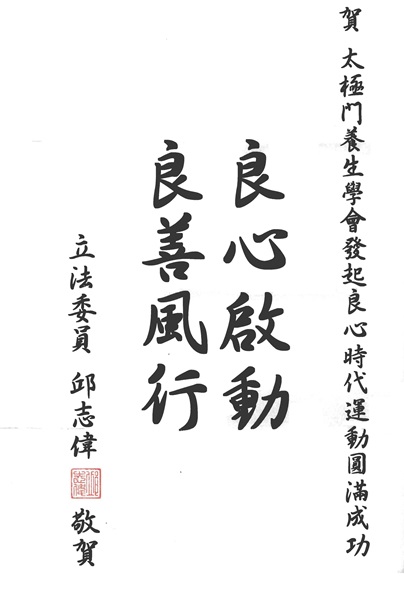 賀 太極門養生學會發起良心時代運動圓滿成功
良心啟動
良善風行
立法委員 邱志偉 敬賀